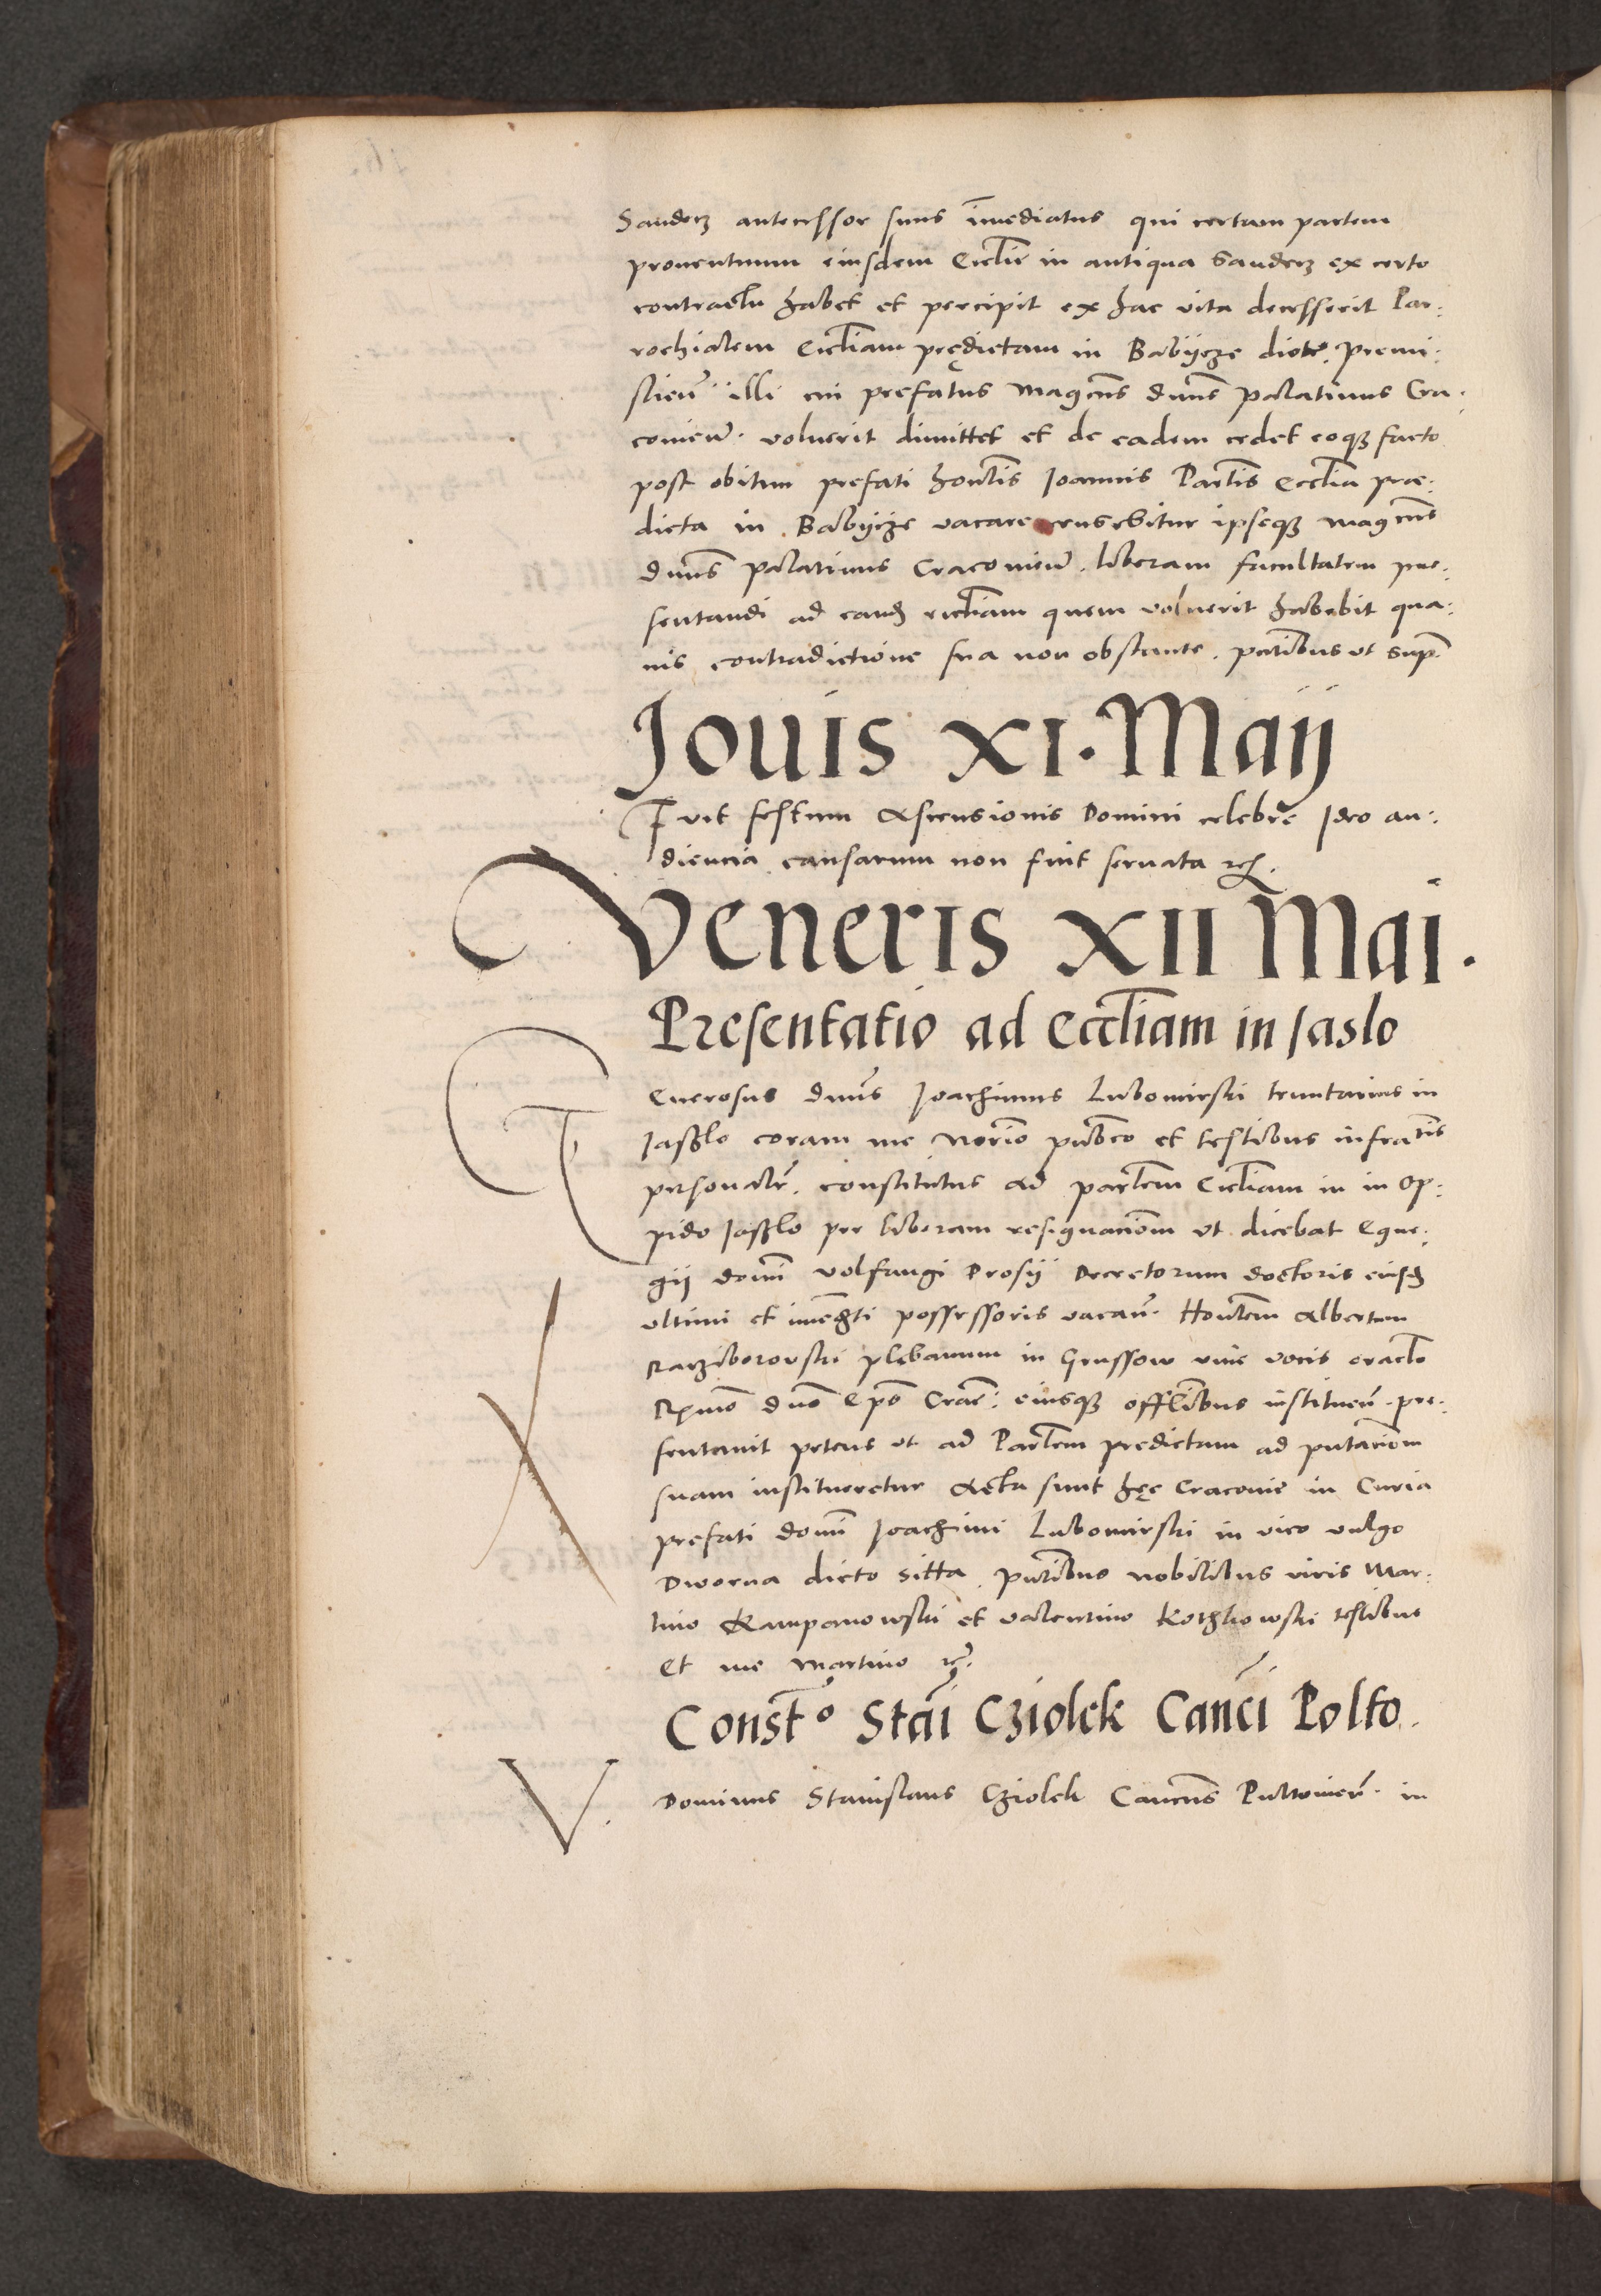 Sandecz antecessor suus im̄ediatus qui certam partem
prouentuum eiusdem Eccl̄ie in antiqua Sandecz ex certo
contractu habet et percipit ex hac vita decesserit Par:
rochialem Eccl̄iam prędictam in Babijcze dioc̄. Premi:
slien̄ illi cui prefatus Magcus dn̄us palatinus Cra:
couien̄. voluerit dimittet et de eadem cedet eoqꝫ facto
post obitum prefati hon̄lis Joannis Par̄lis Eccl̄ia præ:
dicta in Babijcze vacare censebitur ipseqꝫ magcus
dn̄us palatinus Cracouien̄. liberam facultatem præ:
sentandi ad eand̄ eccl̄iam quem voluerit habebit qua:
uis contradictione sua non obstante. pn̄tibus ut sup̄
Jouis XI. Maij
Fuit festum Ascensionis Domini celebre Ideo au:
diencia causarum non fuit seruata etc.
Veneris XII Mai.
Presentatio ad Eccl̄iam in Jaslo
Generosus dn̄us Joachimus Lubomirski tenutarius in
Jasslo coram me No̅rio pub̄co et testibus infra̅tis
personalr̄. constitutus ad par̄lem Eccl̄iam in in op:
pido Jasslo per liberam resignacio̅m ut dicebat Egre:
gij domi̅ Volfangi Drosij Decretorum doctoris eiusd̄
ultimi et imme̅ti possessoris vacan̄. Hon̄lem Albertum
Racziborovski plębanum in Grussow viuę vocis oraclo
Rx̄mo dn̄o Ep̄o Crac̄: eiusqꝫ offi̅libus instituen̄. pre:
sentauit petens ut ad Par̄lem predictam ad pn̄tacio̅m
suam institueretur Acta sunt hęc Cracouie in Curia
prefati domi̅ Joachimi Lubomirski in vico vulgo
Dworna dicto sitta. pn̄tibus nobilibus viris Mar:
tino Rampanowski et Valentino Kothkowski testibus
Et me Martino etc̄.
Const̄o Stāi Cziolek Can̄ci Polto.
Dominus Stanislaus Cziolek Cancus Pultouien̄. in